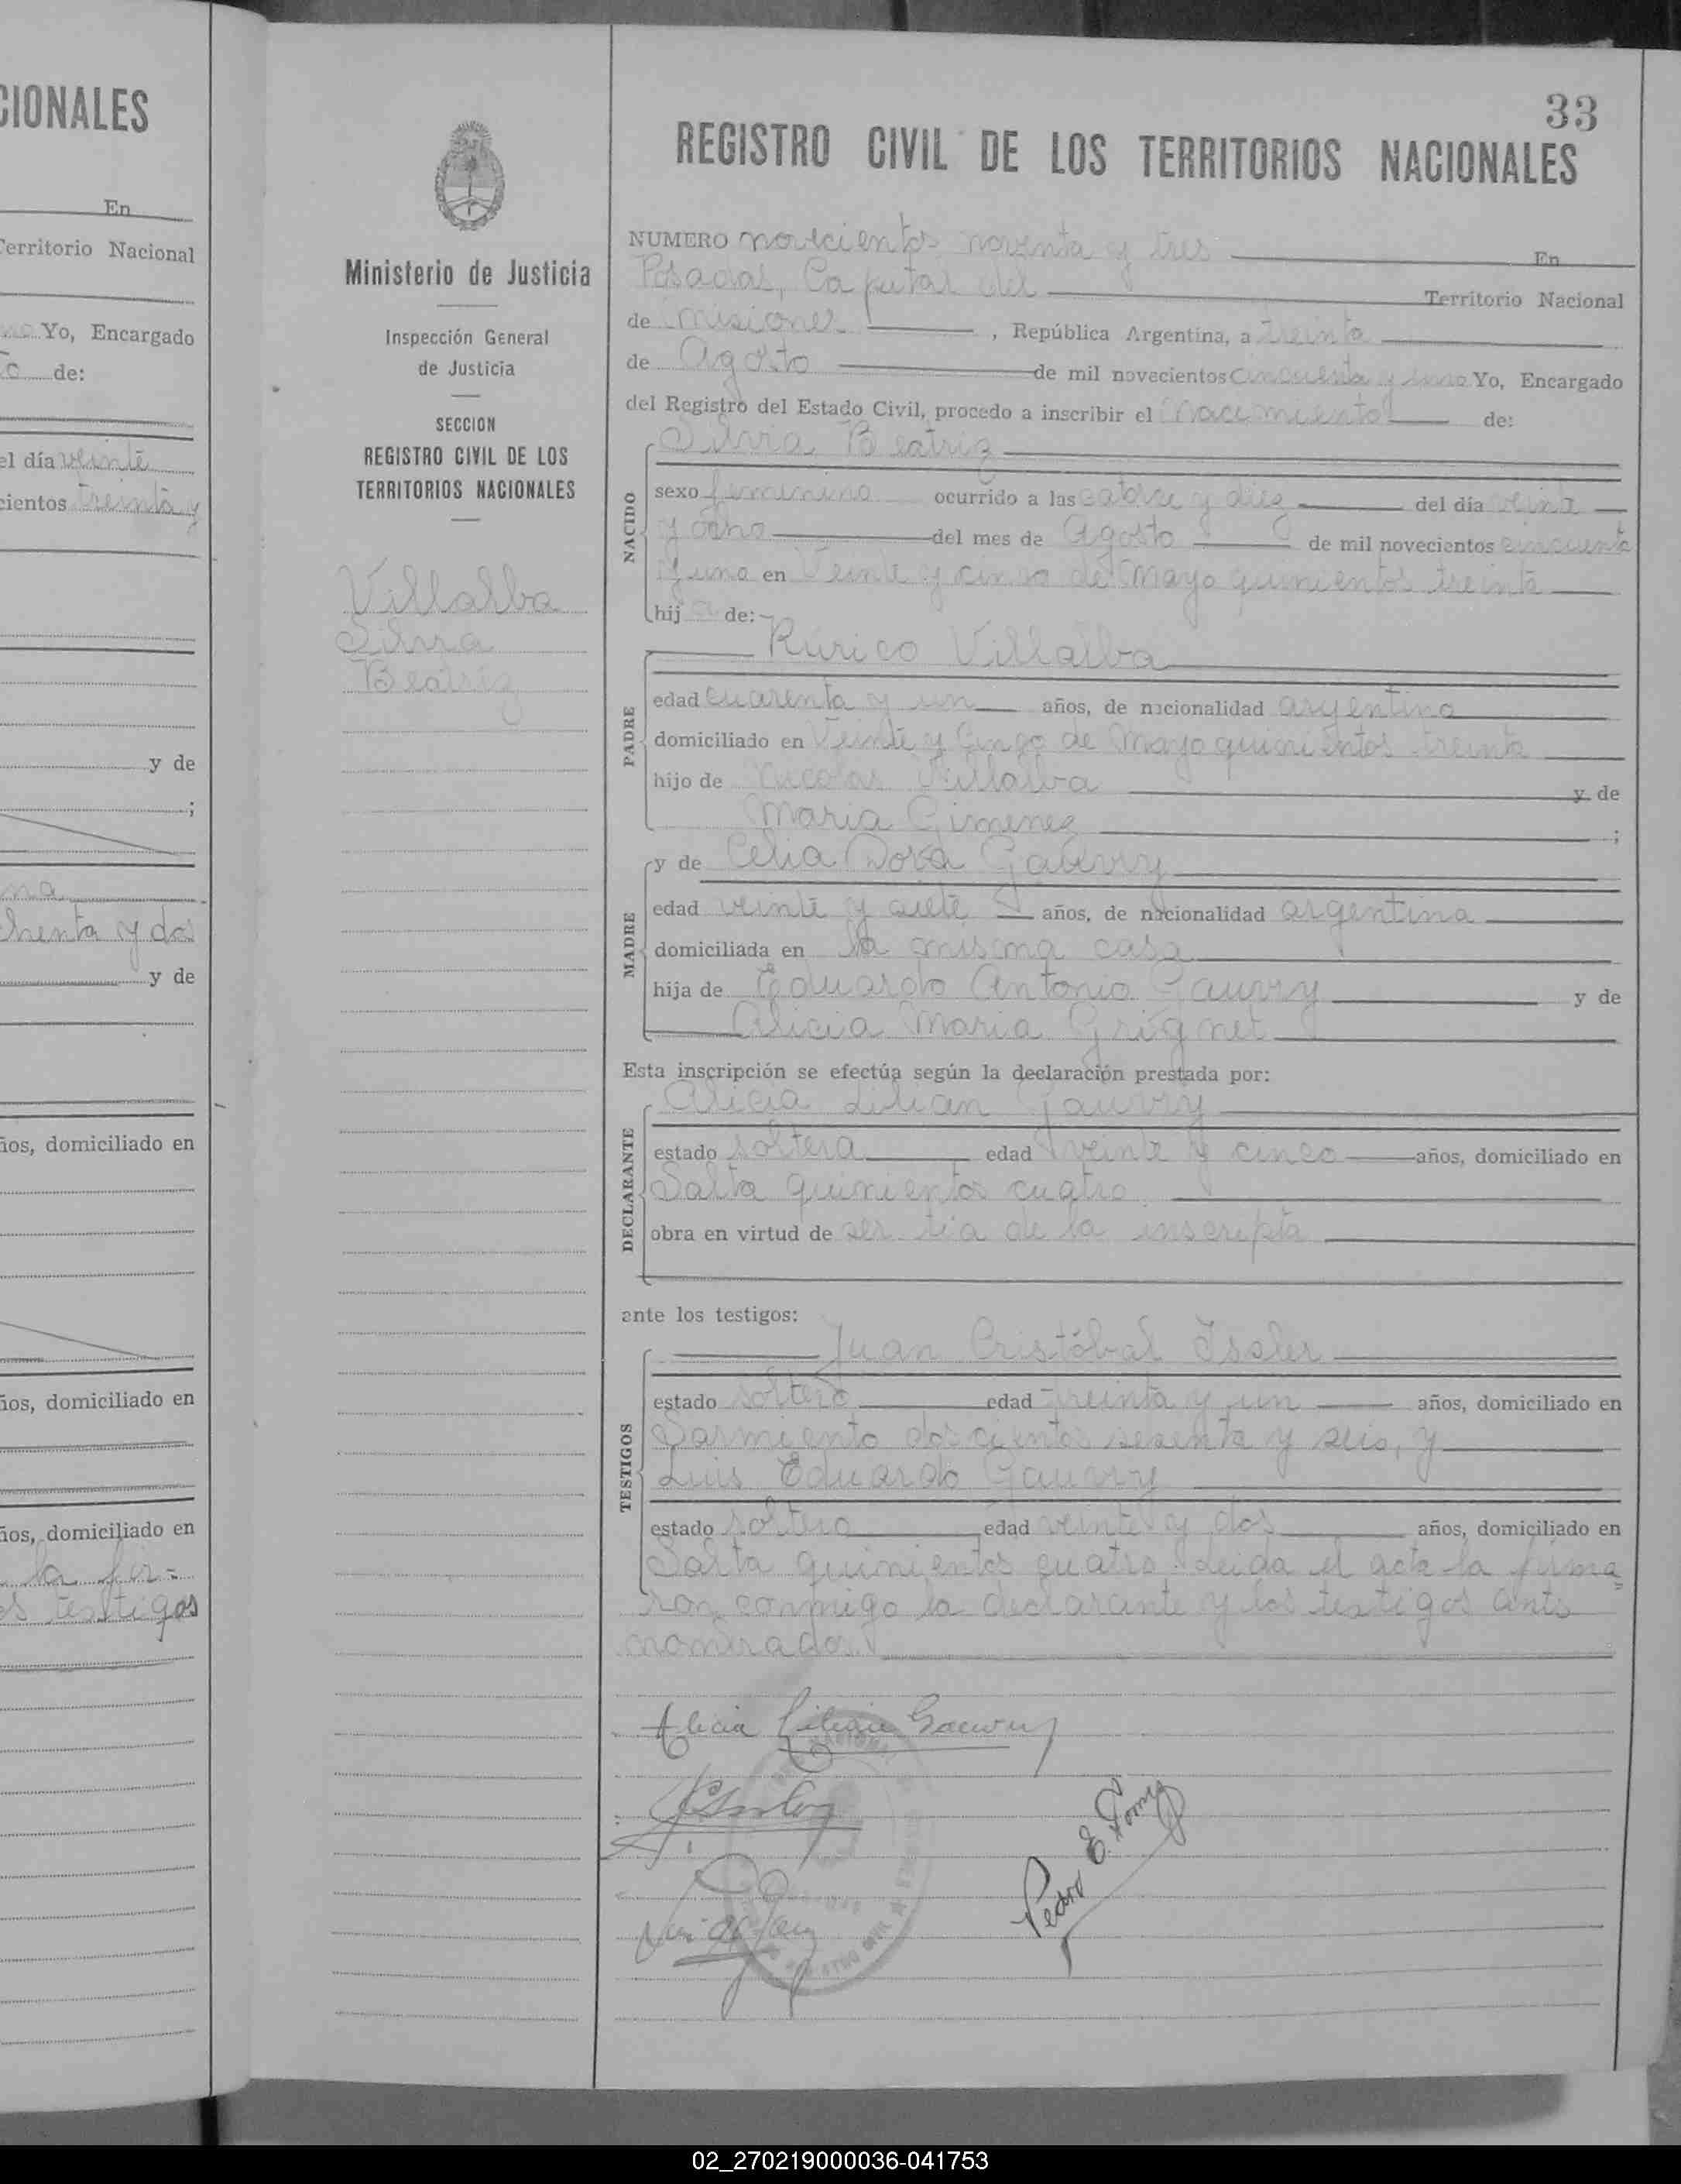 CIONALES
En
Territorio Nacional
Yo, Encargado
de:
el día veinte
cientos treinta y
y de
;
na
henta y dos
y de
ños, domiciliado en
ños, domiciliado en
ños, domiciliado en
la fir=
s testigos
Ministerio de Justicia
Inspección General
de Justicia
SECCION
REGISTRO CIVIL DE LOS
TERRITORIOS NACIONALES
Villalba
Silvia
Beatriz
33
REGISTRO CIVIL DE LOS TERRITORIOS NACIONALES
NUMERO novecientos noventa y tres En
Posadas, Capital del Territorio Nacional
de Misiones, República Argentina, a treinta
de Agosto de mil novecientos cincuenta y uno Yo, Encargado
del Registro del Estado Civil, procedo a inscribir el nacimiento de:
Silvia Beatriz
NACIDO
sexo femenino ocurrido a las catorce y diez del día veinte
y ocho del mes de Agosto de mil novecientos cincuenta
y uno en Veinte y cinco de Mayo quinientos treinta
hija de:
Rurico Villalba
PADRE
edad cuarenta y un años, de nacionalidad argentina
domiciliado en Veinte y Cinco de Mayo quinientos treinta
hijo de Nicolas Villalba y de
Maria Gimenez ;
MADRE
y de Celia Dora Gauvry
edad veinte y siete años, de nacionalidad argentina
domiciliada en la misma casa
hija de Eduardo Antonio Gauvry y de
Alicia Maria Grignet
Esta inscripción se efectúa según la declaración prestada por:
DECLARANTE
Alicia Lilian Gauvry
estado soltera edad veinte y cinco años, domiciliado en
Salta quinientos cuatro
obra en virtud de ser tia de la inscripta
ante los testigos:
TESTIGOS
Juan Cristóbal Isaler
estado soltero edad treinta y un años, domiciliado en
Sarmiento doscientos sesenta y seis, y
Luis Eduardo Gauvry
estado soltero edad veinte y dos años, domiciliado en
Salta quinientos cuatro. Leida el acta la firma=
ron conmigo la declarante y los testigos ante
nombrados.
Alicia Lilian Gauvry
Pedro E.
02_270219000036-041753